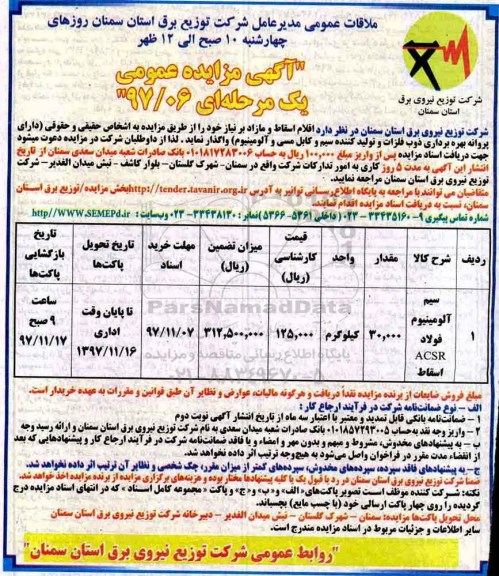 ملاقات عمومی مدیرعامل شرکت توزیع برق استان سمنان روزهای
چهارشنبه ۱۰ صبح الی ۱۲ ظهر
"آگهی مزایده عمومی
یک مرحله‌ای ۹۷/۰۶"
شرکت توزیع نیروی برق
استان سمنان
شرکت توزیع نیروی برق استان سمنان در نظر دارد اقلام اسقاط و مازاد بر نیاز خود را از طریق مزایده به اشخاص حقیقی و حقوقی (دارای
پروانه بهره برداری ذوب فلزات و تولید کننده سیم و کابل مسی و آلومینیوم) واگذار نماید . لذا از داوطلبان شرکت در مزایده دعوت میشود
جهت دریافت اسناد مزایده پس از واریز مبلغ ۱۰۰,۰۰۰ ریال به حساب ۰۱۰۱۸۱۷۲۸۳۰۰۶ بانک صادرات شعبه میدان سعدی سمنان از تاریخ
انتشار این آگهی به مدت ۵ روز کاری به امور تدارکات شرکت واقع در سمنان- شهرک گلستان- بلوار کاشف - نبش میدان الغدیر – شرکت
توزیع نیروی برق استان سمنان مراجعه نمایند.
متقاضیان می توانند با مراجعه به پایگاه اطلاع رسانی توانیر به آدرس http://tender.tavanir.org.ir بخش مزایده /توزیع استان
سمنان، نسبت به دریافت اسناد مزایده اقدام نمایند.
شماره تماس پیگیری ۹- ۳۳۴۳۵۱۶۰ - ۰۲۳ (داخلی ۵۳۶۱- ۵۳۶۶) نمابر : ۳۳۴۳۸۱۳۰- ۰۲۳ وب سایت : http://WWW.SEMEPd.ir
ردیف | شرح کالا | مقدار | واحد | قیمت کارشناسی (ریال) | میزان تضمین (ریال) | مهلت خرید اسناد | تاریخ تحویل پاکت‌ها | تاریخ بازگشایی پاکت‌ها
۱ | سیم آلومینیوم فولاد ACSR اسقاط | ۳۰,۰۰۰ | کیلوگرم | ۱۲۵,۰۰۰ | ۳۱۲,۵۰۰,۰۰۰ | ۹۷/۱۱/۰۷ | تا پایان وقت اداری ۱۳۹۷/۱۱/۱۶ | ساعت ۹ صبح ۹۷/۱۱/۱۷
ParsNamadData
پایگاه اطلاع رسانی مناقصه و مزایده
مبلغ فروش ضایعات از برنده مزایده نقداً دریافت و هرگونه مالیات، عوارض و نظایر آن طبق قوانین و مقررات به عهده خریدار است.
الف - نوع ضمانت‌نامه شرکت در فرآیند ارجاع کار :
۱ - ضمانت‌نامه بانکی قابل تمدید و معتبر با اعتبار سه ماه از تاریخ انتشار آگهی نوبت دوم
۲ - واریز وجه نقد به‌حساب ۰۱۰۱۸۵۷۲۹۳۰۰۵ بانک صادرات شعبه میدان سعدی به نام شرکت توزیع نیروی برق استان سمنان و ارائه رسید وجه
ب - به پیشنهادهای مخدوش، مشروط و مبهم و بدون مهر و امضاء و یا فاقد ضمانت‌نامه شرکت در فرآیند ارجاع کار و پیشنهادهایی که بعد
از انقضاء مدت مقرر در فراخوان واصل می‌شود به هیچ‌وجه ترتیب اثر داده نخواهد شد.
ج- به پیشنهادهای فاقد سپرده، سپرده‌های مخدوش، سپرده‌های کمتر از میزان مقرر، چک شخصی و نظایر آن ترتیب اثر داده نخواهد شد.
ضمناً شرکت توزیع نیروی برق استان سمنان در رد یا قبول یک یا کلیه پیشنهادها مختار بوده و هزینه‌های برگزاری مزایده از برنده مزایده اخذ خواهد شد.
نکته: شرکت کننده موظف است تصویر پاکت‌های «الف» و «ب» و «ج» و پاکت «مجموعه کامل اسناد» که در انتهای اسناد مزایده درج
گردیده را روی چهار پاکت ارسالی خود (با چسب مایع) بچسباند.
محل تحویل پاکت‌ها مزایده: سمنان – شهرک گلستان – نبش میدان الغدیر – دبیرخانه شرکت توزیع نیروی برق استان سمنان
سایر اطلاعات و جزئیات مربوط در اسناد مزایده مندرج است.
"روابط عمومی شرکت توزیع نیروی برق استان سمنان"